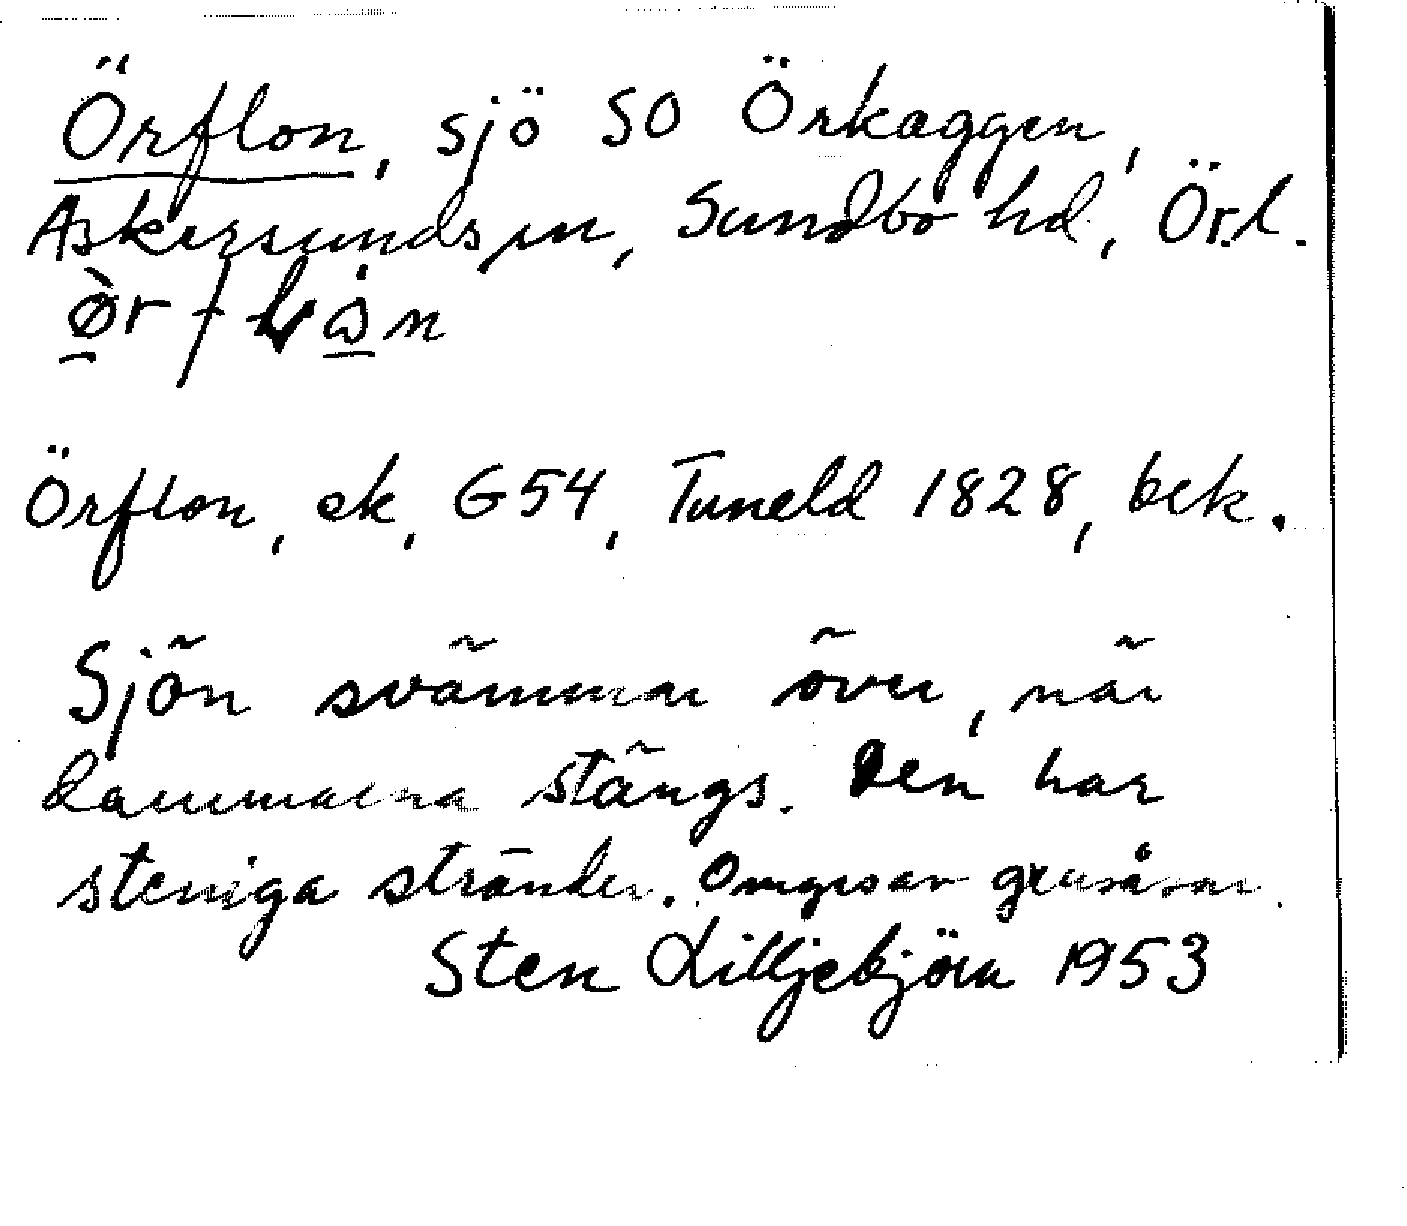 Örflon, sjö SO Örkaggen,
Askersunds sn, Sundbo hd, Örl.
Örflon, ek, G54, Tuneld 1828, bek.
Sjön svämmar över, när
dammarna stängs. Den har
steniga stränder. Omges av grusåsar.
Sten Lilljebjörn 1953